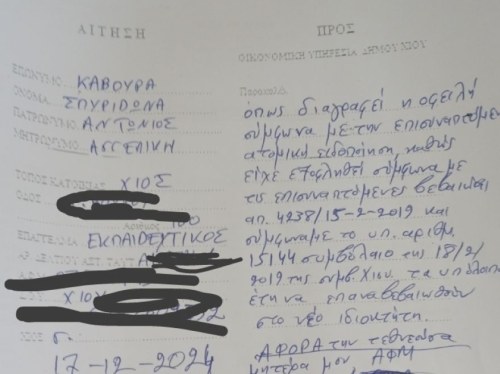 ΑΙΤΗΣΗ
ΕΠΩΝΥΜΟ ΚΑΒΟΥΡΑ
ΟΝΟΜΑ ΣΠΥΡΙΔΩΝΑ
ΠΑΤΡΩΝΥΜΟ ΑΝΤΩΝΙΟΣ
ΜΗΤΡΩΝΥΜΟ ΑΓΓΕΛΙΚΗ
ΤΟΠΟΣ ΚΑΤΟΙΚΙΑΣ ΧΙΟΣ
ΟΔΟΣ
Αριθμός 100
ΕΠΑΓΓΕΛΜΑ ΕΚΠΑΙΔΕΥΤΙΚΟΣ
ΑΡ. ΔΕΛΤΙΟΥ ΑΣΤ. ΤΑΥΤ. Α
ΧΙΟΥ
ΧΙΟΣ
17-12-2024
ΠΡΟΣ
ΟΙΚΟΝΟΜΙΚΗ ΥΠΗΡΕΣΙΑ ΔΗΜΟΥ ΧΙΟΥ
Παρακαλώ
όπως διαγραφεί η οφειλή
σύμφωνα με την επισυναπτόμενη
ατομική ειδοποίηση, καθώς
είχε εξοφληθεί σύμφωνα με
τις επισυναπτόμενες βεβαιώσεις
απ. 4238/15-2-2019 και
σύμφωνα με το υπ. αριθμ.
15144 συμβόλαιο της 18/2/
2019 της συμβ. Χίου. τα υπόλοιπα
έτη να επαναβεβαιωθούν
στο νέο ιδιοκτήτη.
ΑΦΟΡΑ την τεθνεώσα
μητέρα μου, ΑΦΜ